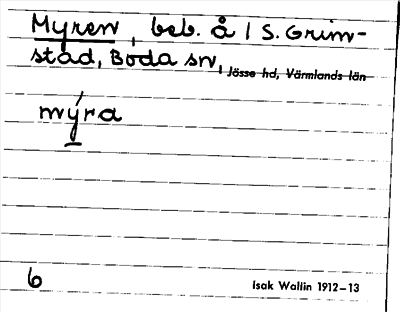 Myren, beb. å 1 S. Grim-
stad, Boda sn, Jösse hd, Värmlands län
mýra
6
Isak Wallin 1912–13